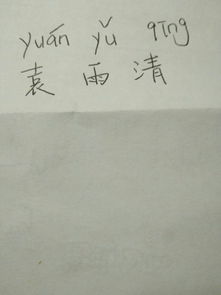 yuán yǔ qīng
袁 雨 清